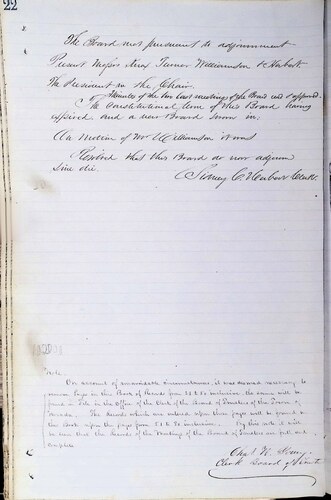 22
The Board met pursuant to adjournment
Present Messrs Turner Williamson &
The President in the Chair.
Minutes of the two last meetings of the Board read & approved
The Constitutional term of this Board having
expired and a new Board sworn in;
On Motion of Mr Williamson it was
Resolved that this Board do now adjourn
Sine die.
Sidney C. Clerk.
Note.
On account of unavoidable circumstances, it was deemed necessary to
pages in this Book of Records from to inclusive. The same will be
found on file in the Office of the Clerk of the Board of Trustees of the Town of
. The records which are entered upon these pages will be found in
this Book upon the pages from to inclusive. By this it will
be seen that the Records of the Meetings of the Board of Trustees are full and
complete.
Chas W.
Clerk Board of Trust